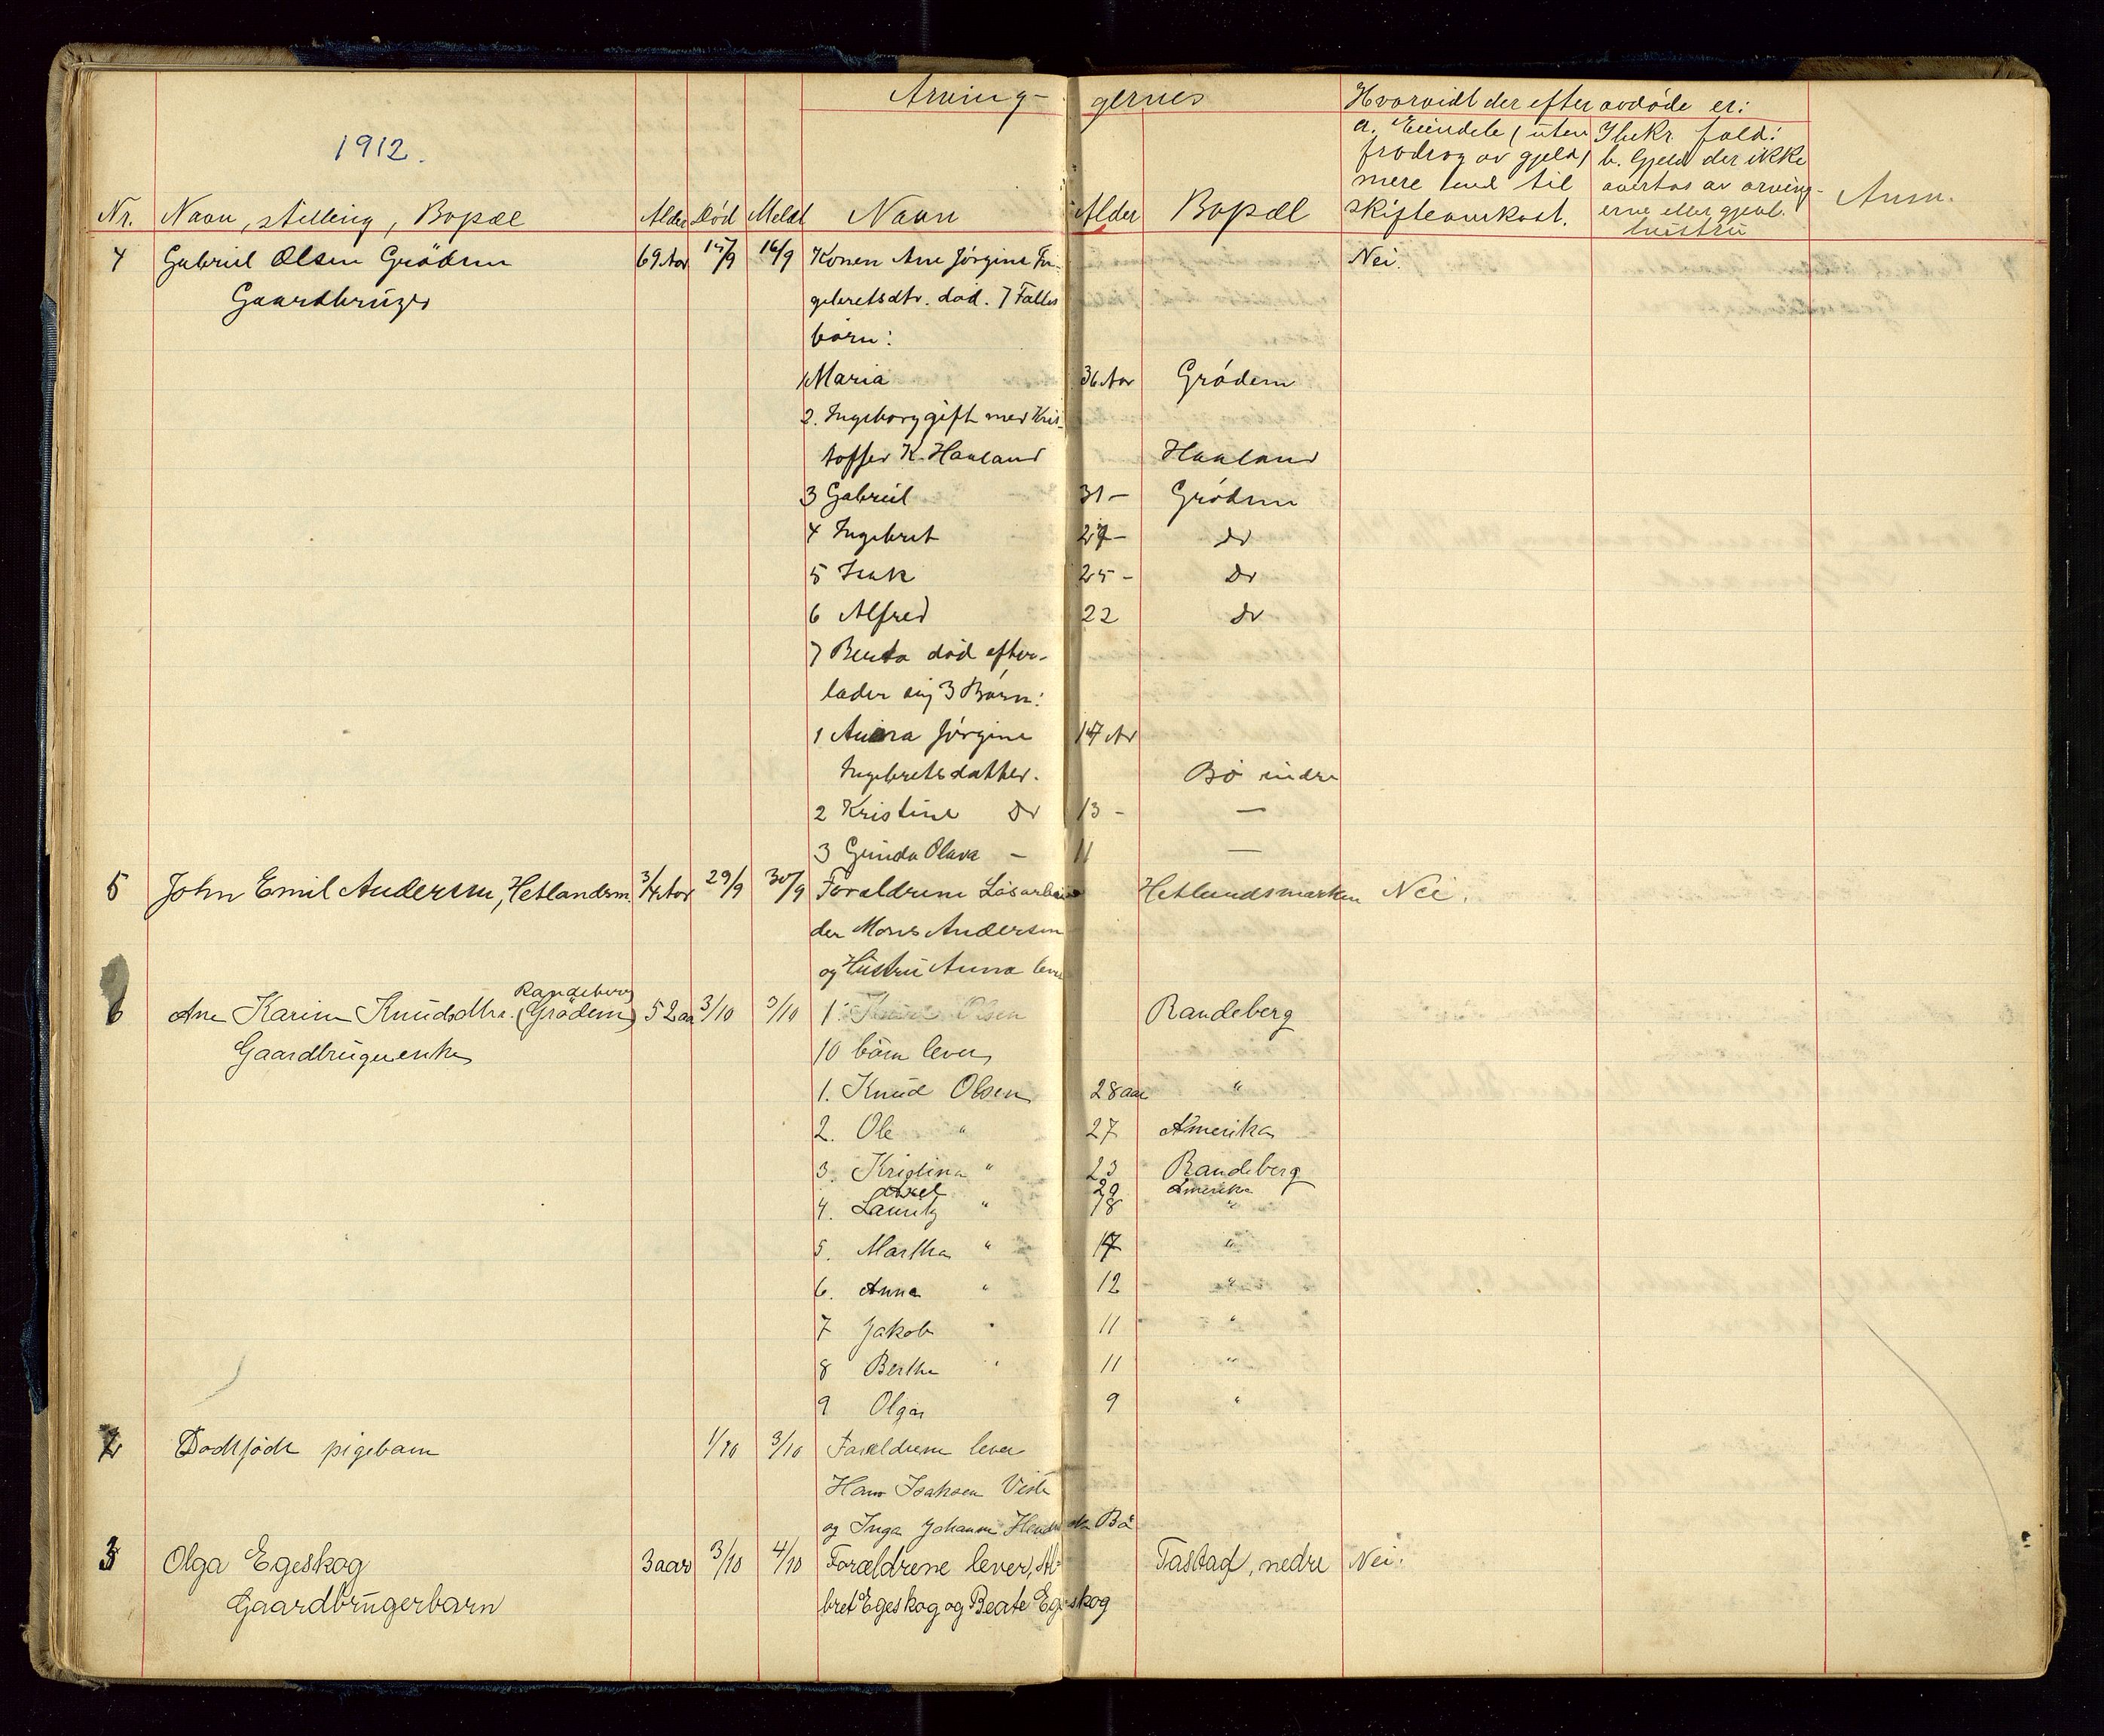 Arving- gernes
Hvorvidt der efter avdøde er:
1912.
a. Eiendele (uten
fradrag av gjeld)
mere end til
skifteomkost.
Ibekr. fald:
b. Gjeld der ikke
overtas av arving-
erne eller gjenl.
hustru
Nr. Navn, stilling, Bopæl Alder Død Meldt Navn Alder Bopæl Anm.
4 Gabriel Olsen Grödem 69 Aar 15/9 16/9 Konen Ane Jörgine In- Nei.
Gaardbruger gebretsdtr. död. 7 Fælles
börn:
1 Maria 36 Aar Grödem
2. Ingeborg gift med Kris-
toffer K. Haaland Haaland
3 Gabriel 31 - Grödem
4 Ingebret 27 - do
5 Isak 25 - do
6 Alfred 22 do
7 Berta död efter-
lader sig 3 Börn:
1 Anna Jörgine 14 Ar
Ingebretsdatter. Bö indre
2 Kristine do 13 - —
3 Gunda Olava - 11 —
5 John Emil Andersen, Hetlandsm. 3/4 Aar 29/9 30/9 Forældrene Lösarbei Hetlandsmarken Nei.
der Mons Andersen
og Hustru Anna leve
6 Ane Karine Knudsdtr. (Grödem) Randeberg 52 aar 3/10 3/10 1. Olsen Randeberg
Gaardbrugerenke 10 börn lever
1. Knud Olsen 28 aar "
2. Ole " 27 Amerika
3. Kristina " 23 Randeberg
Axel 20 Amerika
4. Lauritz " 18 "
5. Martha " 17 "
6. Anna " 12 "
7 Jakob " 11 "
8 Bertha " 11 "
9 Olga 9 "
2 Dödfödt pigebarn 1/10 3/10 Forældrene lever
Hans Isaksen Viste
og Inga Johanne Bö
3 Olga Egeskog 3 aar 3/10 4/10 Forældrene lever, Al- Tastad, nedre Nei.
Gaardbrugerbarn bret Egeskog og Beate Egeskog